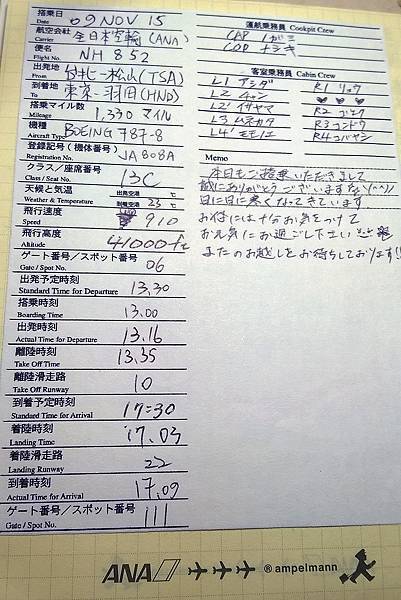 搭乗日
Date
09 NOV 15
航空会社
Carrier
全日本空輸(ANA)
便名
Flight No.
NH 852
出発地
From
台北-松山(TSA)
到着地
To
東京-羽田(HND)
搭乗マイル数
Mileage
1,330 マイル
機種
Aircraft Type
BOEING 787-8
登録記号(機体番号)
Registration No.
JA808A
クラス/座席番号
Class / Seat No.
13C
天候と気温
Weather & Temperature
出発空港 ℃
到着空港 23 ℃
飛行速度
Speed
910
飛行高度
Altitude
41000 ft
ゲート番号/スポット番号
Gate / Spot No.
06
出発予定時刻
Standard Time for Departure
13.30
搭乗時刻
Boarding Time
13.00
出発時刻
Actual Time for Departure
13.16
離陸時刻
Take Off Time
13.35
離陸滑走路
Take Off Runway
10
到着予定時刻
Standard Time for Arrival
17:30
着陸時刻
Landing Time
17.03
着陸滑走路
Landing Runway
22
到着時刻
Actual Time for Arrival
17.09
ゲート番号/スポット番号
Gate / Spot No.
111
運航乗務員 Cockpit Crew
CAP ノガミ
COP ナシキ
客室乗務員 Cabin Crew
L1 アシダ R1 リュウ
L2 チャン
L2' イサヤマ R2
L3 ムネカタ R3 コンドウ
L4' モモノエ R4 コバヤシ
Memo
本日もご搭乗いただきまして
誠にありがとうございますな(^^)/
日に日に寒くなってきています
お体には十分お気をつけて
お元気にお過ごし下さい
またのお越しをお待ちしております!!
ANA
® ampelmann